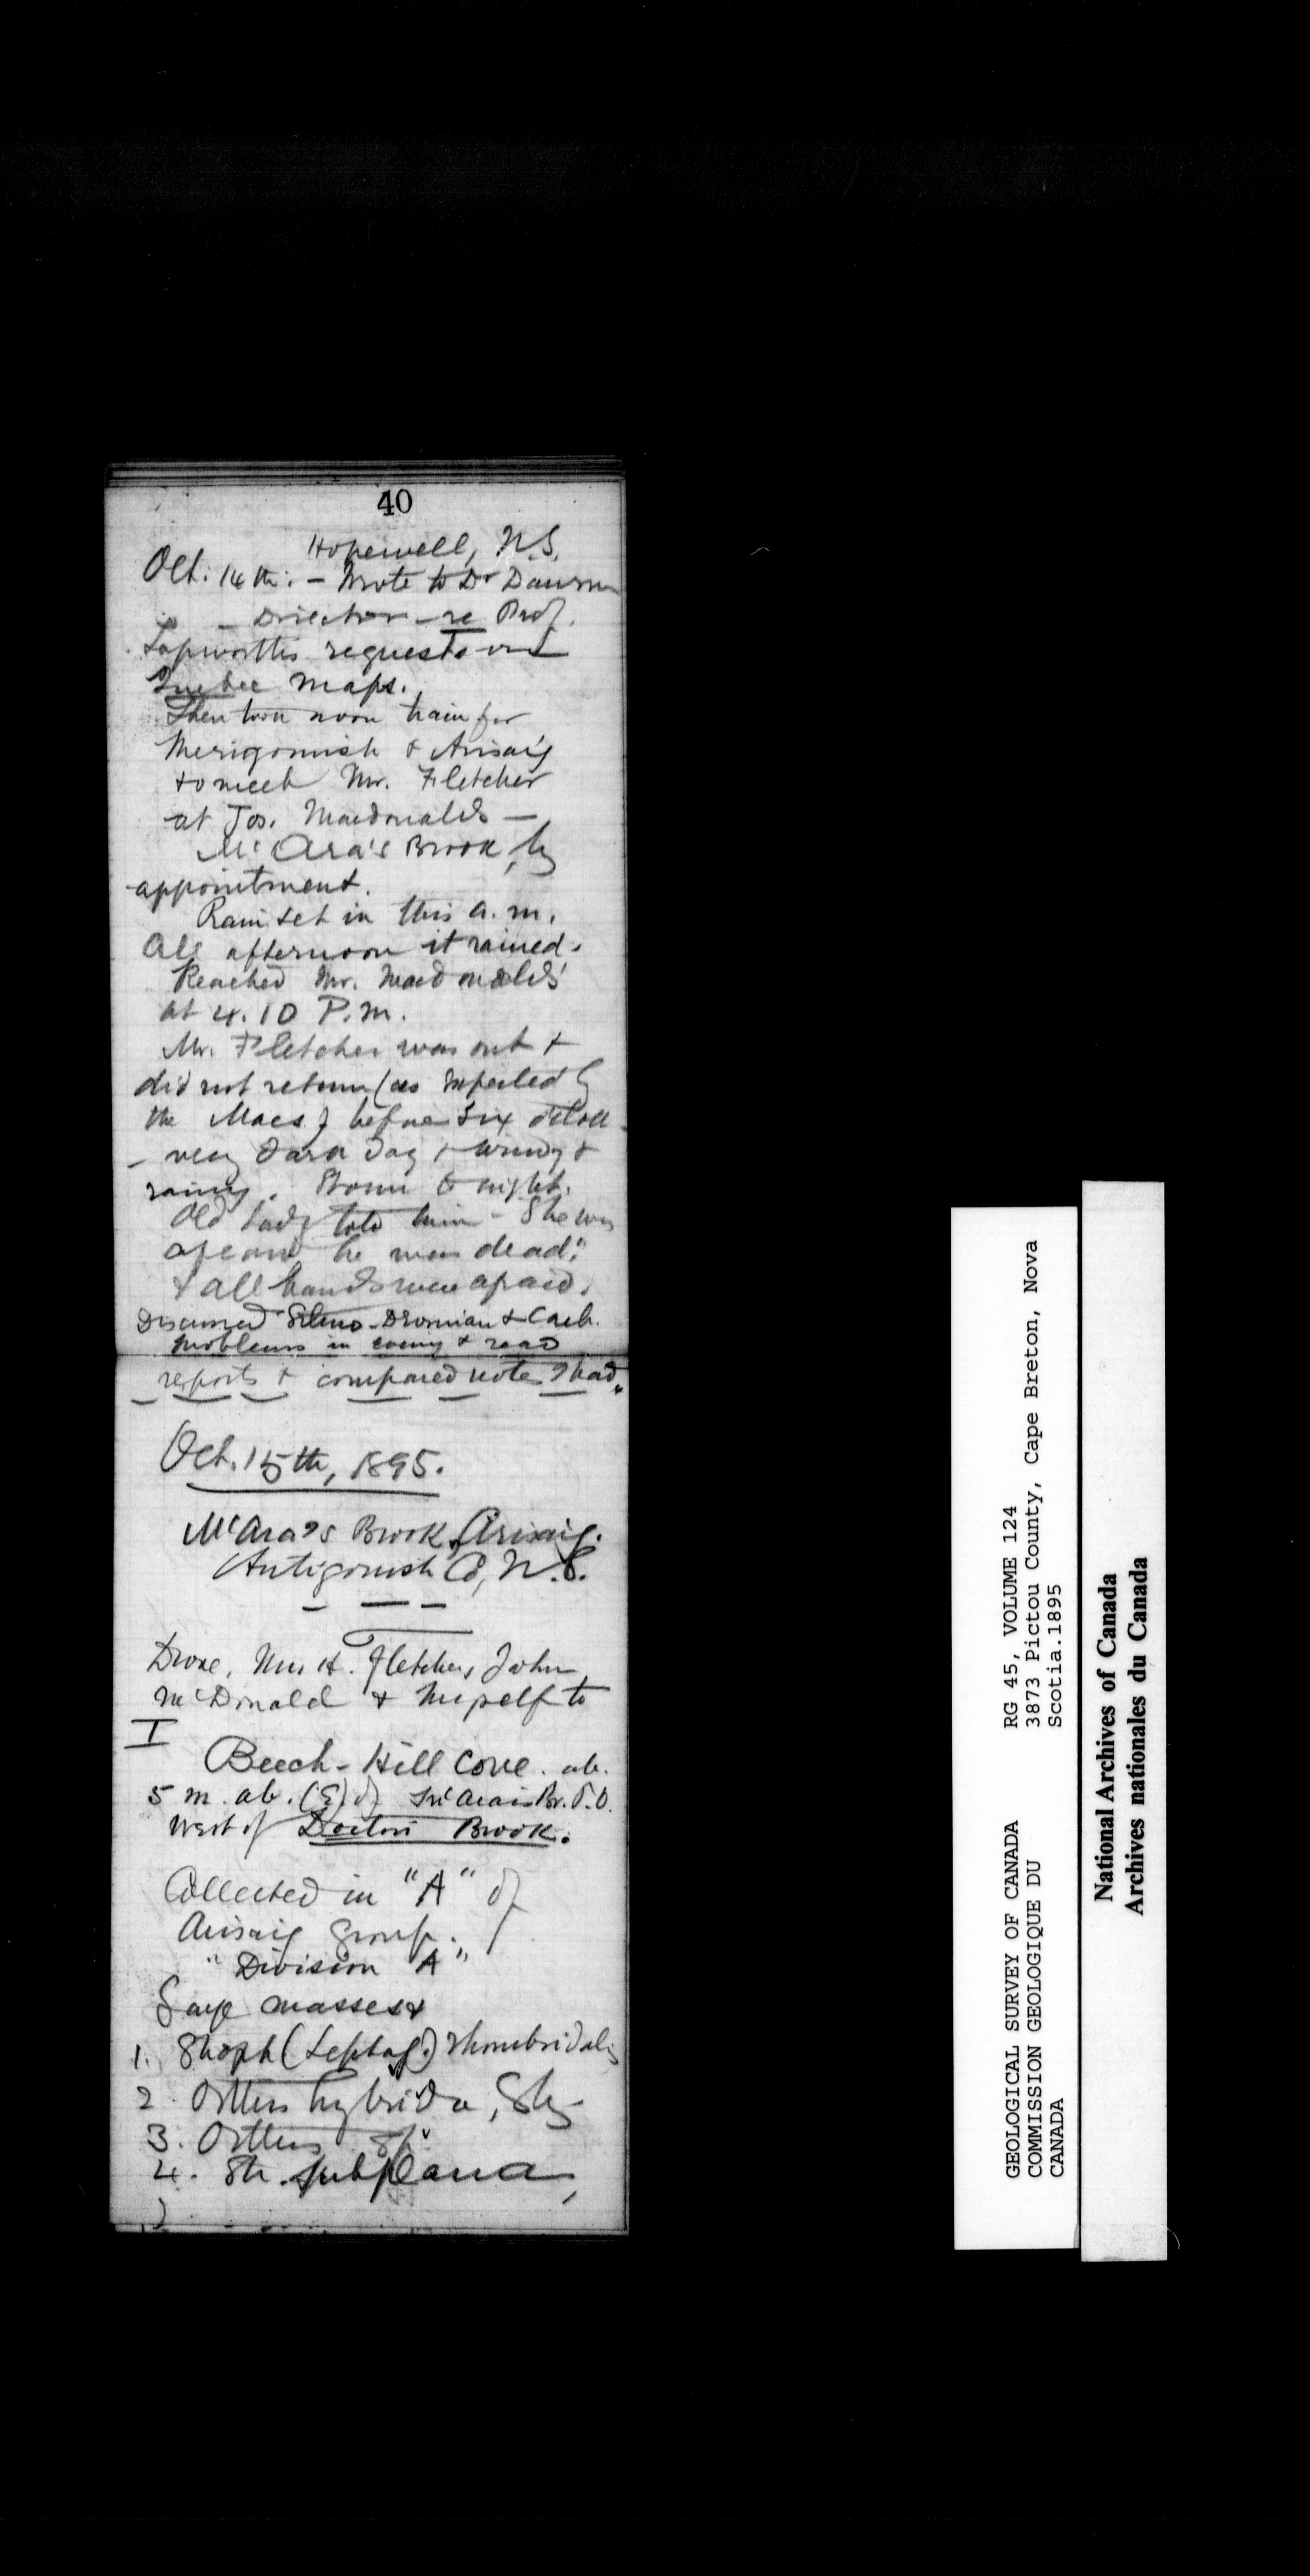 40
Hopewell, N.S.
Oct. 14th. - Wrote to Dr Dawson
- Director - re Prof.
Lapworth's request
Quebec maps.
Then took noon train for
Merigomish & Arisaig
to meet Mr. Fletcher
at Jos. Macdonalds -
McAra's Brook, by
appointment.
Rain set in this a.m.
All afternoon it rained.
Reached Mr. Macdonalds'
at 4.10 P.m.
Mr. Fletcher was out &
did not return (as expected by
the Macs.) before six o'clock
- very dark day & windy &
rainy. Storm to night.
Old Lady told him - She was
afeard he was dead."
& all hands were afraid.
Discussed Siluro-Devonian & Carb.
problems in evening & read
reports & compared notes I had.
Oct. 15th, 1895.
McAra's Brook, Arisaig.
Antigonish Co, N.S.
Drove, Mr H. Fletcher, John
McDonald & myself to
I
Beech-Hill Cove. ab.
5 m. ab. (E) of McAra's Br. P.O.
West of Doctors Brook.
Collected in "A" of
Arisaig group.
"Division A"
Large masses
1. Stroph (Leptag.) rhomboidalis
2. Orthis hybrida, Sby
3. Orthis sp.
4. Str. subplana,
GEOLOGICAL SURVEY OF CANADA
COMMISSION GEOLOGIQUE DU
CANADA
RG 45, VOLUME 124
3873 Pictou County, Cape Breton, Nova
Scotia.1895
National Archives of Canada
Archives nationales du Canada